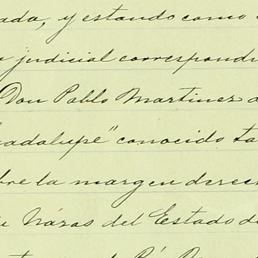 ada, y estando como
judicial correspond
Don Pablo Martinez
uadalupe" conocido ta
re la margen derec
Názas del Estado d